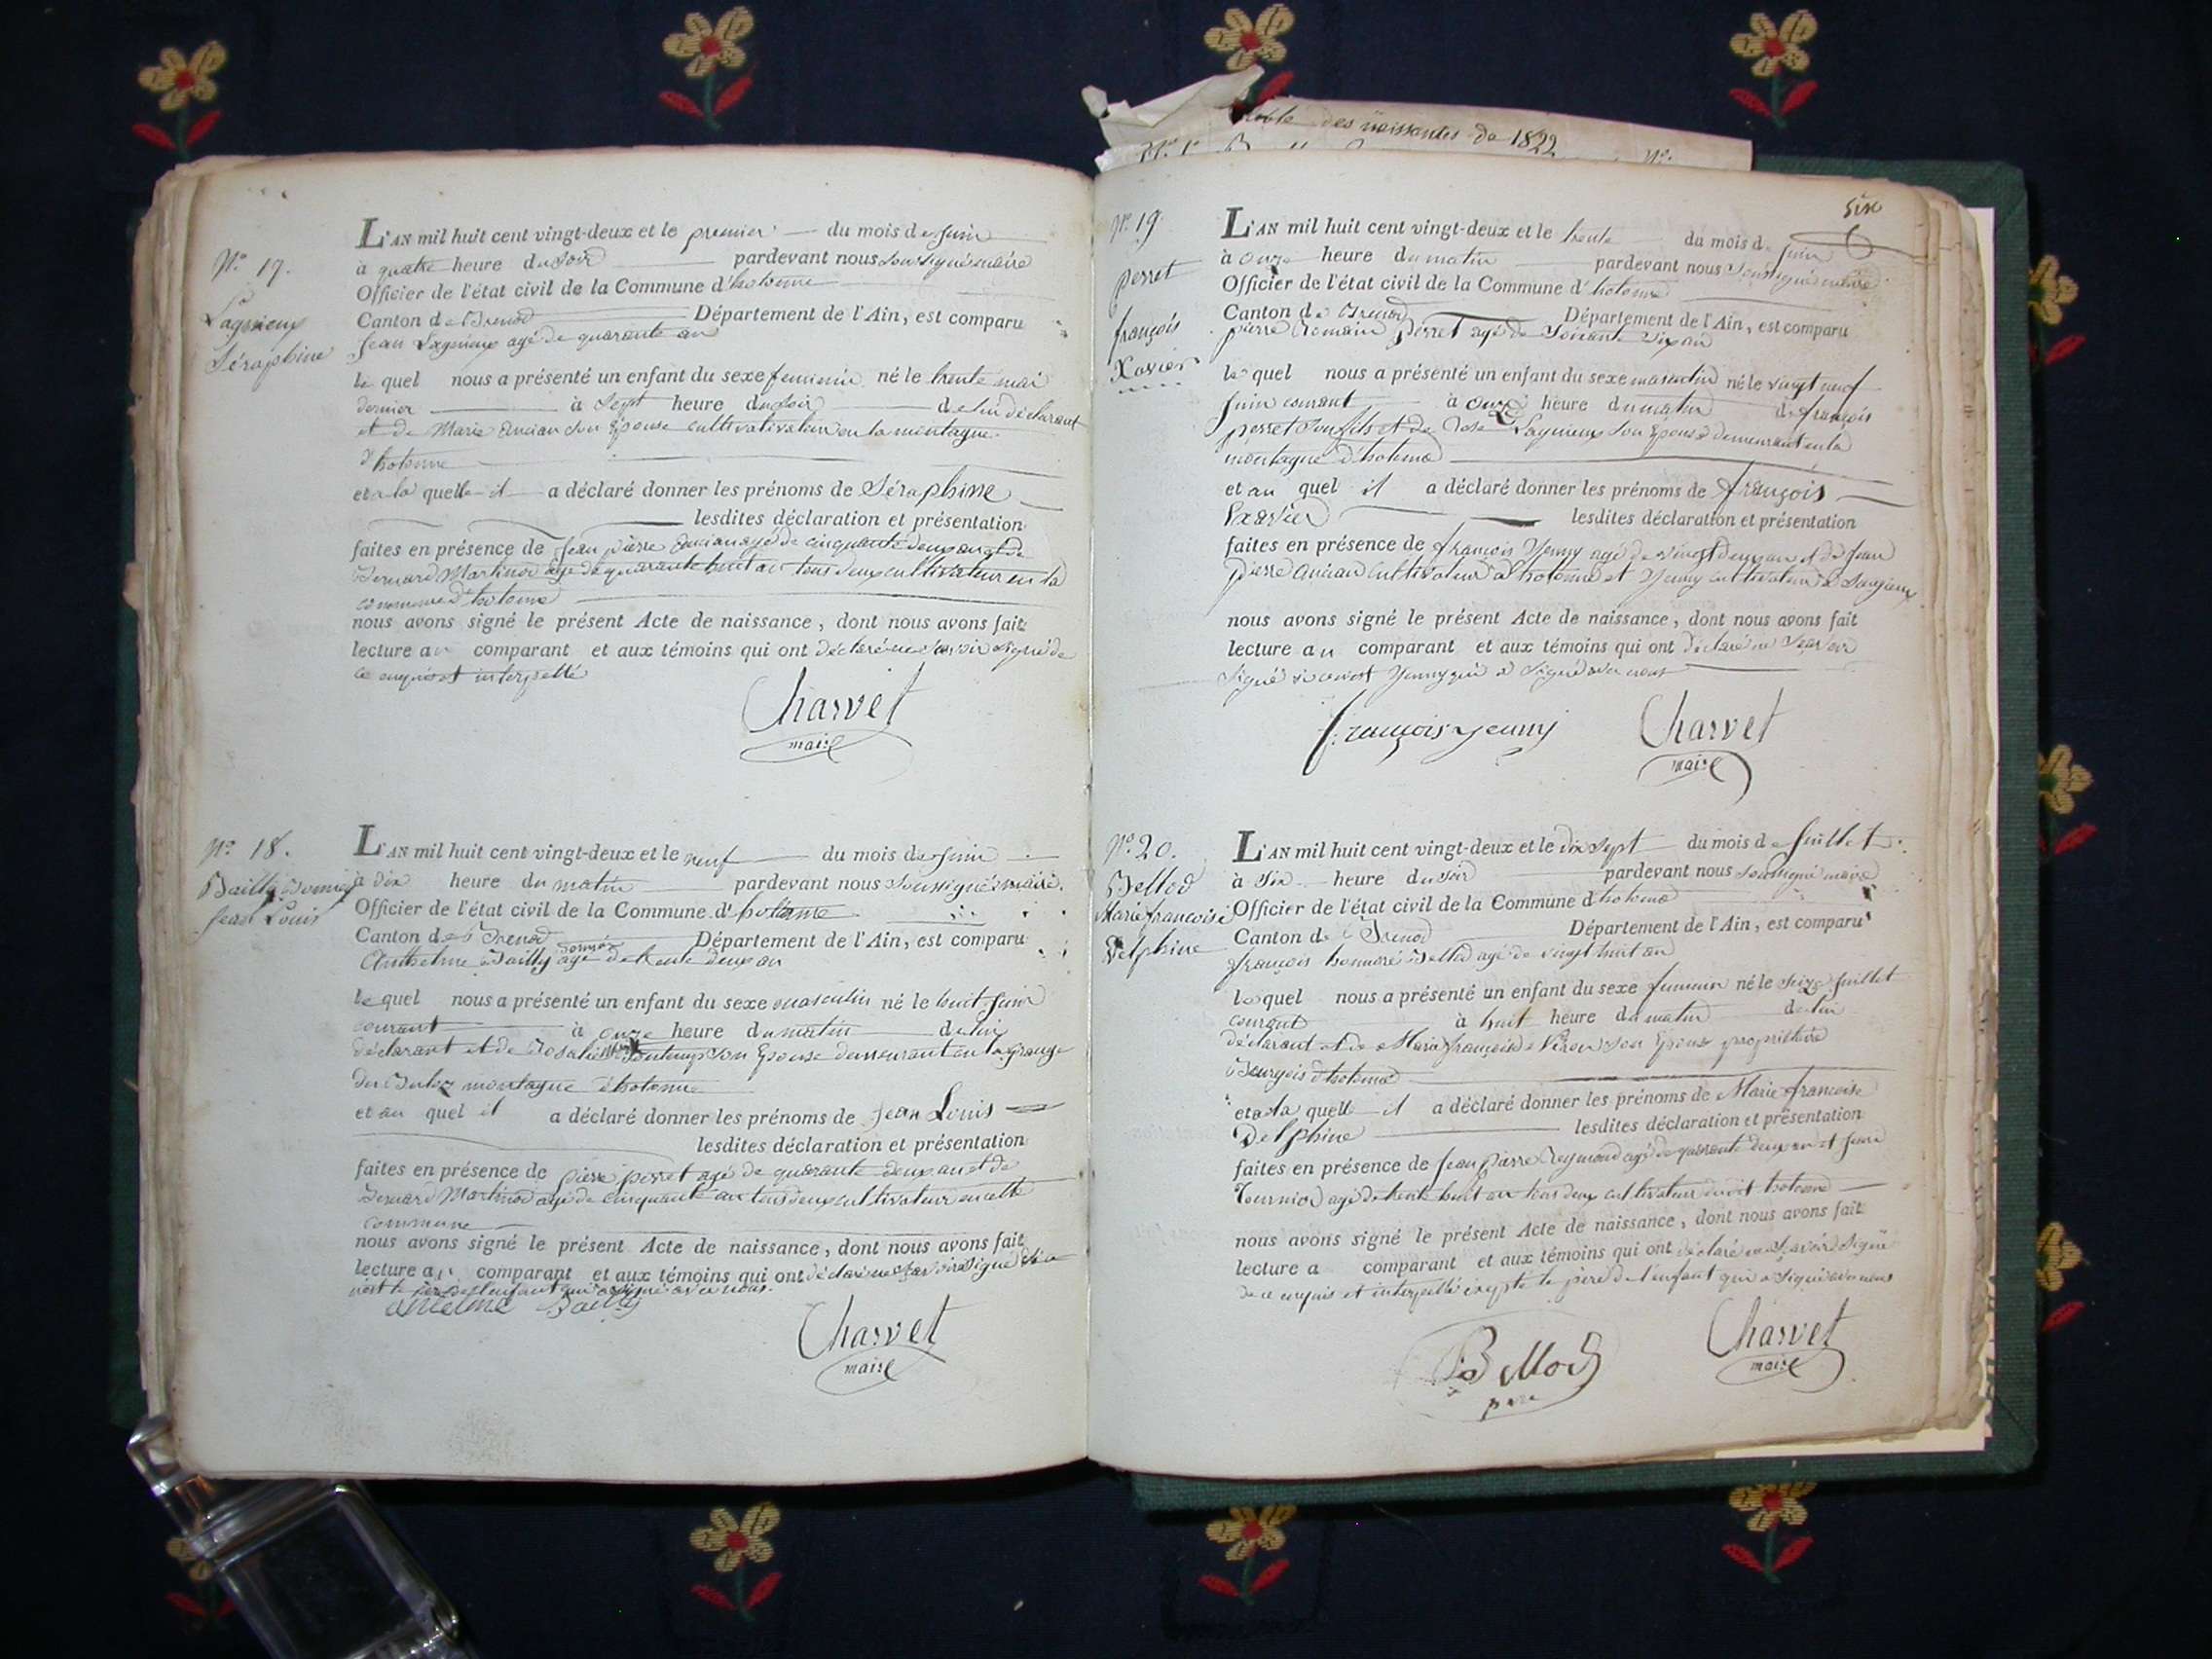 N.° 17.
Lagnieux
Séraphine
L'AN mil huit cent vingt-deux et le premier du mois de Juin
à quatre heure du Soir pardevant nous soussigné maire
Officier de l'état civil de la Commune d'hotonne
Canton de Brenod Département de l'Ain, est comparu
Jean Lagnieux agé de quarante an
le quel nous a présenté un enfant du sexe feminin né le trente mai
dernier à Sept heure du Soir de lui déclarant
et de Marie ancian son Epouse cultivativateur en la montagne
d'hotonne
et a la quelle il a déclaré donner les prénoms de Séraphine
lesdites déclaration et présentation
faites en présence de Jean pierre ancian agé de cinquante deux an et de
Bernard Martinod agé de quarante huit an tous deux cultivateur en la
commune d'hotonne
nous avons signé le présent Acte de naissance, dont nous avons fait
lecture au comparant et aux témoins qui ont déclaré ne savoir signé de
ce enquis et interpellé
Charvet
maire
N.° 18.
Bailly Jomiod
Jean Louis
L'AN mil huit cent vingt-deux et le neuf du mois de Juin
à dix heure du matin pardevant nous soussigné maire
Officier de l'état civil de la Commune d'hotonne
Canton de Brenod Département de l'Ain, est comparu
Anthelme Bailly agé de trente deux an
le quel nous a présenté un enfant du sexe masculin né le huit Juin
courant à onze heure du matin de lui
déclarant et de Rosalie son Epouse demeurant en la grange
montagne d'hotonne
et au quel il a déclaré donner les prénoms de Jean Louis
lesdites déclaration et présentation
faites en présence de pierre perret agé de quarante deux an et de
Bernard Martinod agé de cinquante an tous deux cultivateur en cette
commune
nous avons signé le présent Acte de naissance, dont nous avons fait
lecture au comparant et aux témoins qui ont déclaré ne savoir signé si ce
n'est le père de l'enfant qui a signé avec nous.
Bailly
Charvet
maire
table des naissantes de 1822
N.°
six
6
N.° 19.
perret
françois
Xavier
L'AN mil huit cent vingt-deux et le trente du mois de Juin
à onze heure du matin pardevant nous soussigné maire
Officier de l'état civil de la Commune d'hotonne
Canton de Brenod Département de l'Ain, est comparu
pierre Romain perret agé de Soixante dix an
le quel nous a présenté un enfant du sexe masculin né le vingt neuf
Juin courant à onze heure du matin de françois
perret son fils et de Rose Lagnieux son Epouse demeurant en la
montagne d'hotonne
et au quel il a déclaré donner les prénoms de françois
Exavier lesdites déclaration et présentation
faites en présence de françois Yenny agé de vingt deux an et de Jean
pierre ancian cultivateur à hotonne et Yenny cultivateur à Songieux
nous avons signé le présent Acte de naissance, dont nous avons fait
lecture au comparant et aux témoins qui ont déclaré ne Scavoir
Signé si ce n'est Yenny qui a Signé avec nous
françois yenny
Charvet
maire
N.° 20.
Bellod
Marie francoise
Delphine
L'AN mil huit cent vingt-deux et le dix Sept du mois de Juillet
à Six heure du Soir pardevant nous soussigné maire
Officier de l'état civil de la Commune d'hotonne
Canton de Brenod Département de l'Ain, est comparu
françois honnoré Bellod agé de vingt huit an
le quel nous a présenté un enfant du sexe feminin né le seize Juillet
courant à huit heure du matin de lui
déclarant et de Marie françoise son Epouse propriétaire
Bourgois d'hotonne
et a la quelle il a déclaré donner les prénoms de Marie francoise
Delphine lesdites déclaration et présentation
faites en présence de Jean pierre Reymond agé de quarante deux an et
Tournier agé de trente huit an tous deux cultivateur hotonne
nous avons signé le présent Acte de naissance, dont nous avons fait
lecture a comparant et aux témoins qui ont déclaré ne Scavoir Signé
de ce enquis et interpellé exepté le père de l'enfant qui a Signé avec nous
Bellod
pere
Charvet
maire